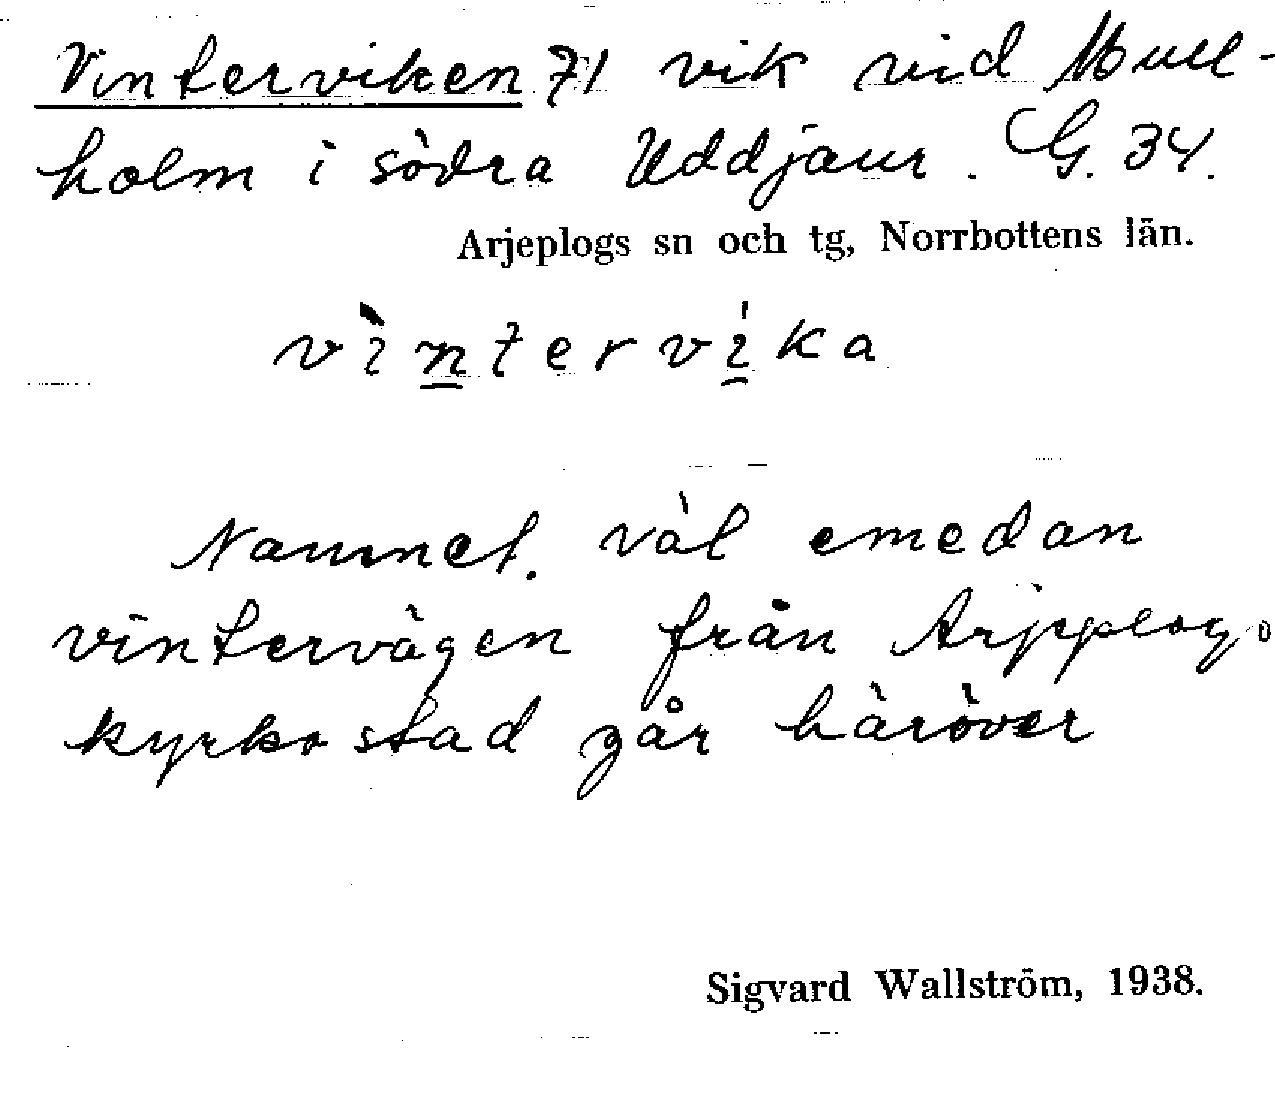 Vinterviken 71 vik vid Mull-
holm i södra Uddjaur. G. 34.
Arjeplogs sn och tg, Norrbottens län.
vìntervika
Namnet. väl emedan
vintervägen från Arjeplogs
kyrkostad går häröver
Sigvard Wallström, 1938.